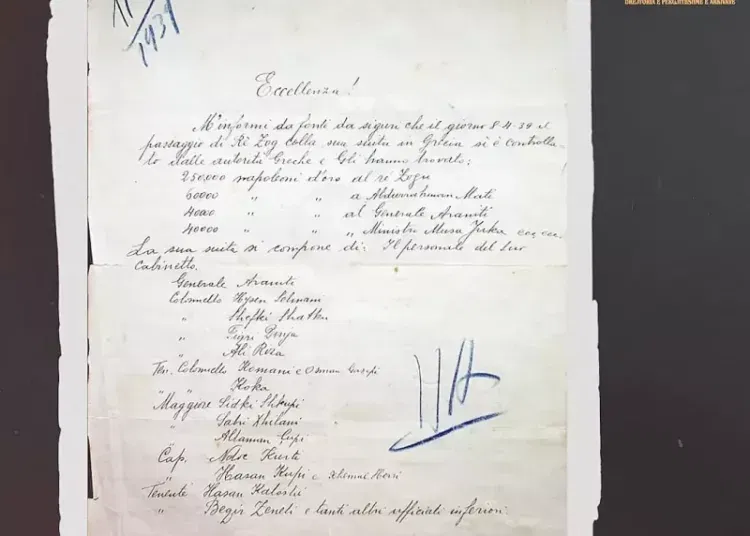 DREJTORIA E PËRGJITHSHME E ARKIVAVE
1939
Eccellenza!
M'informi da fonti da siguri che il giorno 8-4-39 il
passaggio di Rè Zog colla sua suita in Grecia si è controlla-
to dalle autorità Greche e Gli hanno trovato;
250,000 napoleoni d'oro al re Zogu
60000 " " a Abdurrahman Mati
40000 " " al Generale Araniti
40000 " " " Ministro Musa Juka ecc, ecc.
La sua suita si compone di: Il personale del suo
Cabinetto.
Generale Araniti
Colonnello Hysen Selmani
" Shefki Shatku
" Ali Riza
Ten. Colonnello Hemani e Osman Gazepi
" " Koka
Maggiore Sidki Shkupi
" Sabri
Cap. Ndoc Kurti
" Hasan Kupi e
Tenente Hasan
" Begir Zeneli e tanti altri ufficiali inferiori.